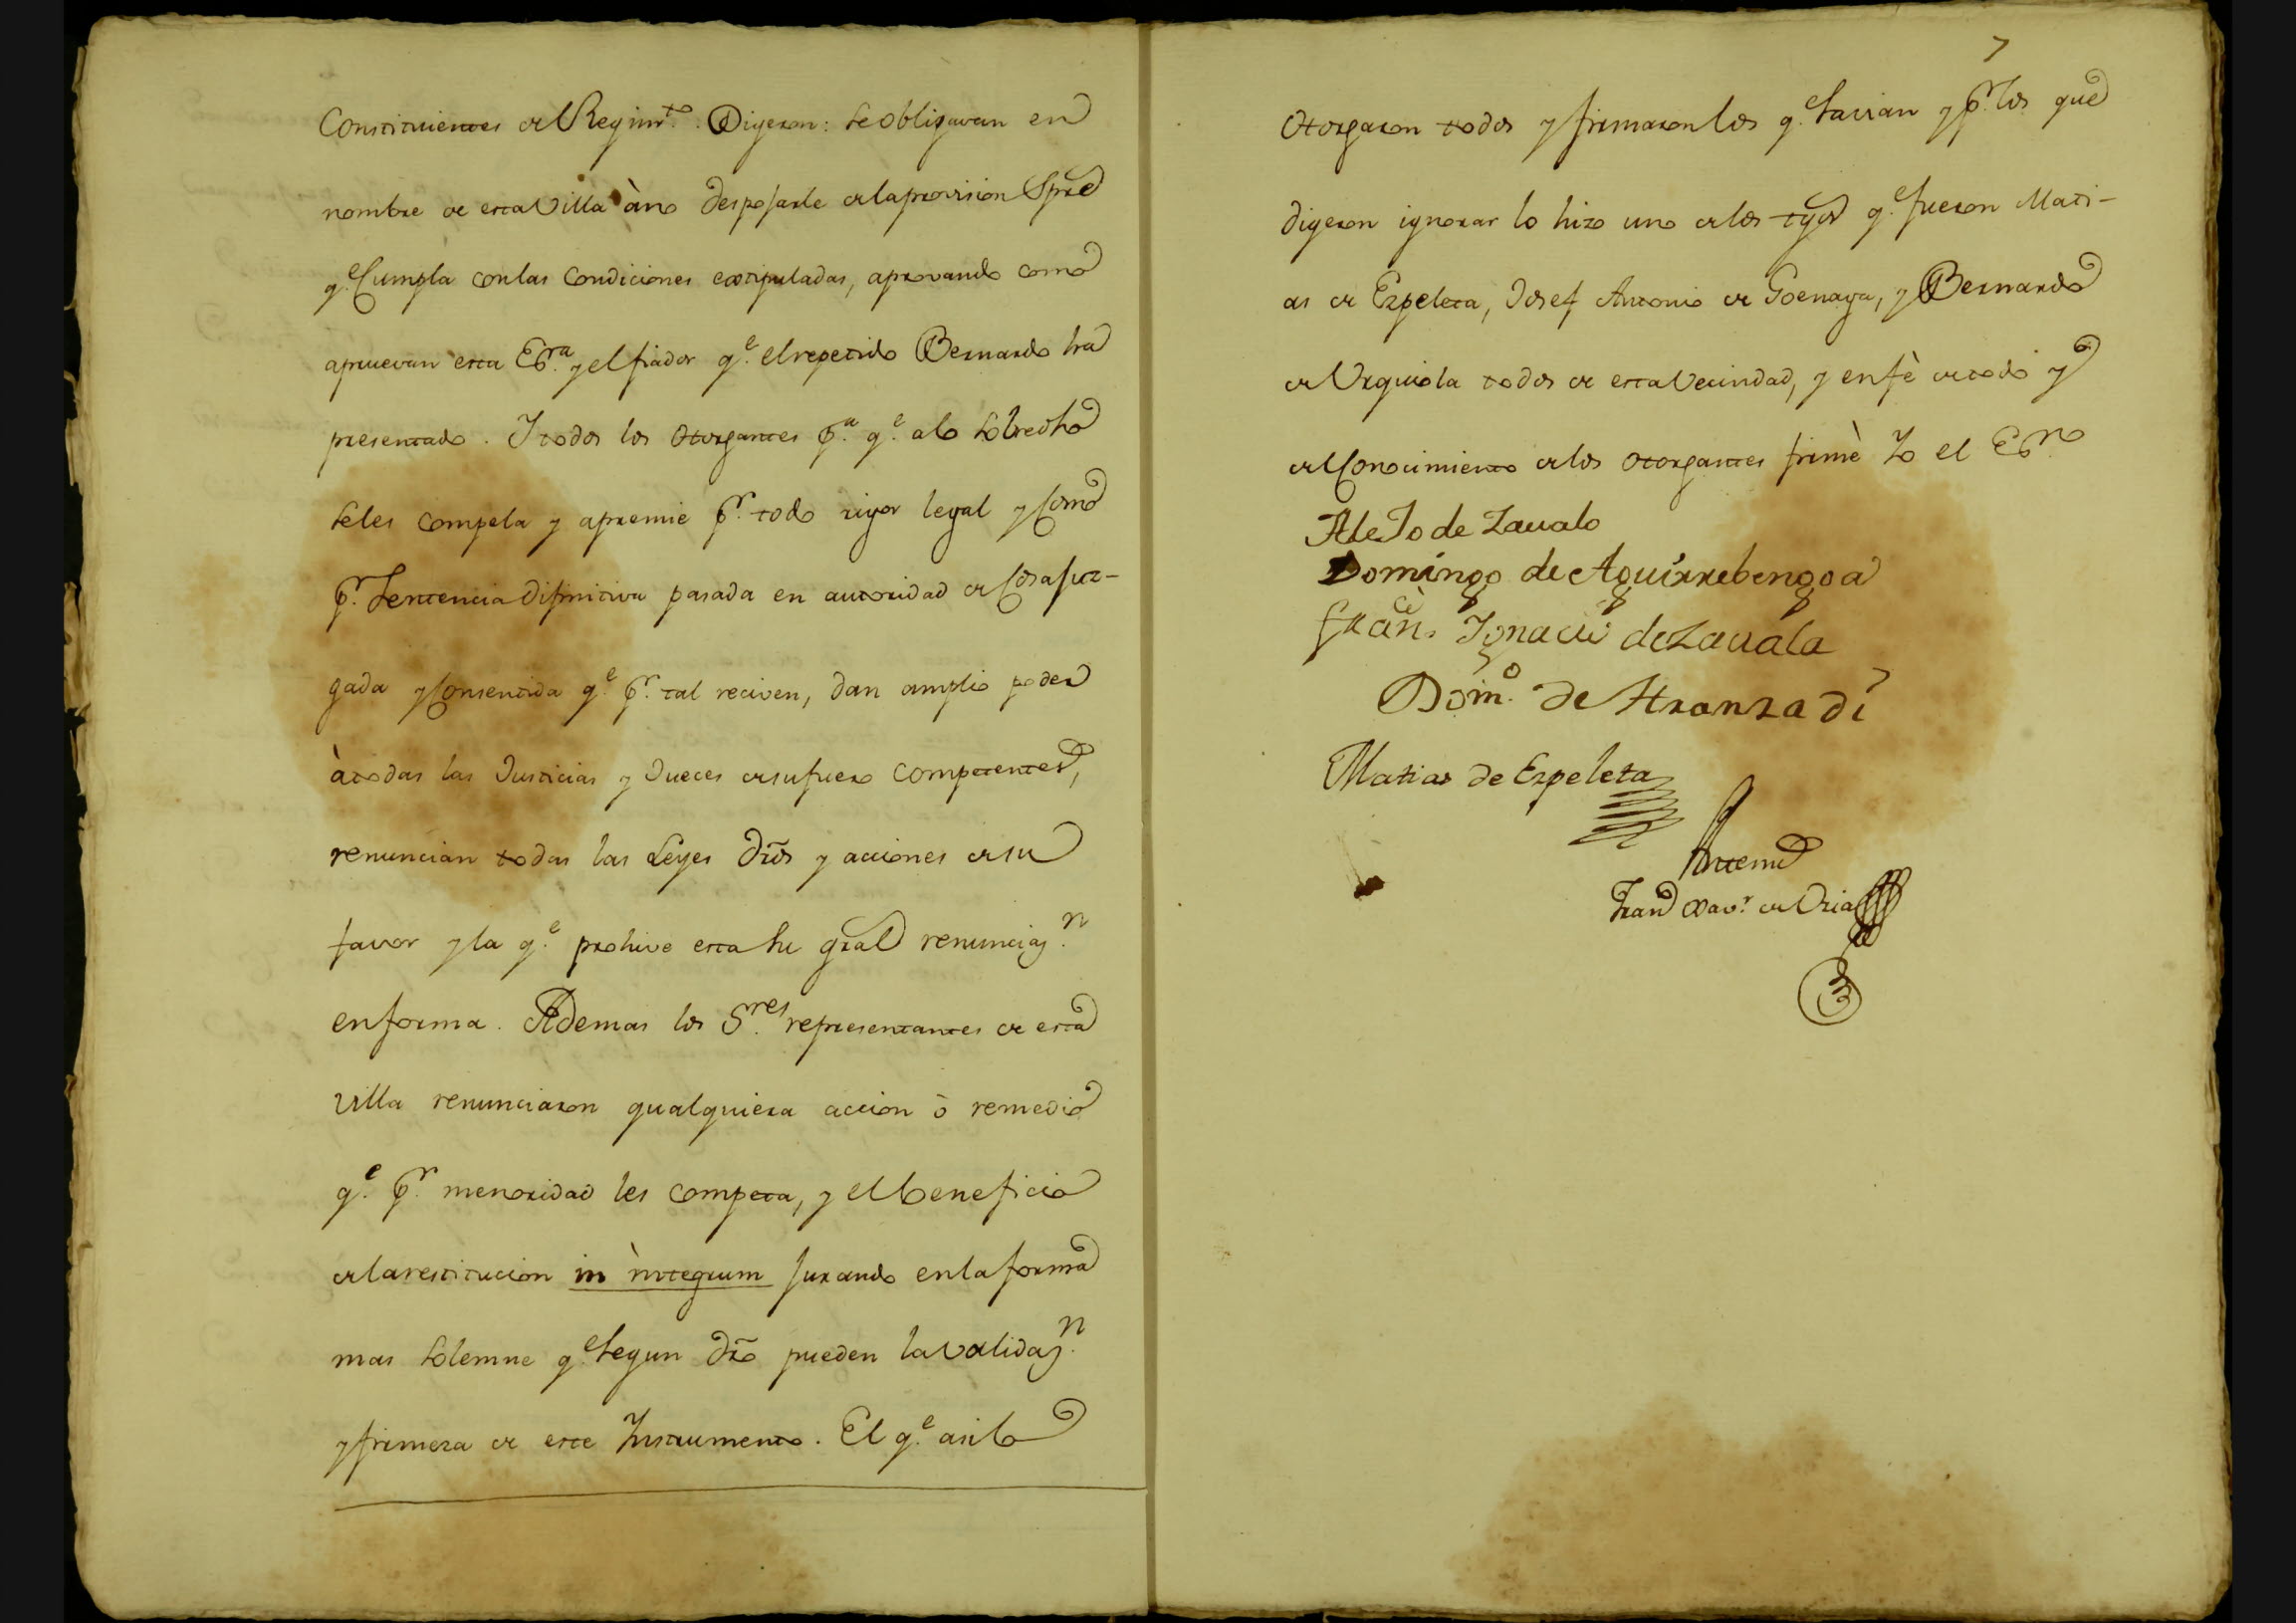 Constituientes del Regim.to. Digeron: Se obligavan en
nombre de esta Villa à no despojarle de la provision Spre
q.e Cumpla con las Condiciones extipuladas, aprovando como
apruevan esta Es.ra y el fiador q.e el repetido Bernardo ha
presentado. I todos los Otorgantes p.a q.e a lo Sobredho
Seles Compela y apremie p.r todo rigor legal y Como
p.r Sentencia difinitiva pasada en autoridad de Cosa Juz-
gada y Consentida q.e p.r tal reciven, dan amplio poder
à todas las Justicias y Jueces de su fuero Competentes,
renuncian todas las Leyes dros y acciones de su
favor y la q.e prohive esta Su gral renunciaz.n
en forma. Ademas los S.res representantes de esta
Villa renunciaron qualquiera accion ò remedio
q.e p.r menoridad les Competa, y el beneficio
de la restitucion in integrum Jurando en la forma
mas Solemne q.e Segun dro pueden la validaz.n
y firmeza de este Instrumento. El q.e asi lo
7
Otorgaron todos y firmaron los q.e Savian y p.r los que
digeron ignorar lo hizo uno de los tgos q.e fueron Mati-
as de Ezpeleta, Josef Antonio de Goenaga, y Bernardo
de Urquiola todos de esta Vecindad, y en fè de todo y
del Conocimiento de los Otorgantes firmè Yo el Es.no
AleJo de Zaualo
Domingo de Aguirrebengoa
Fran.co Ignacio de Zauala
Dom.o de Aranzadi
Matias de Ezpeleta
Antemi
Fran Xav.r de Oria